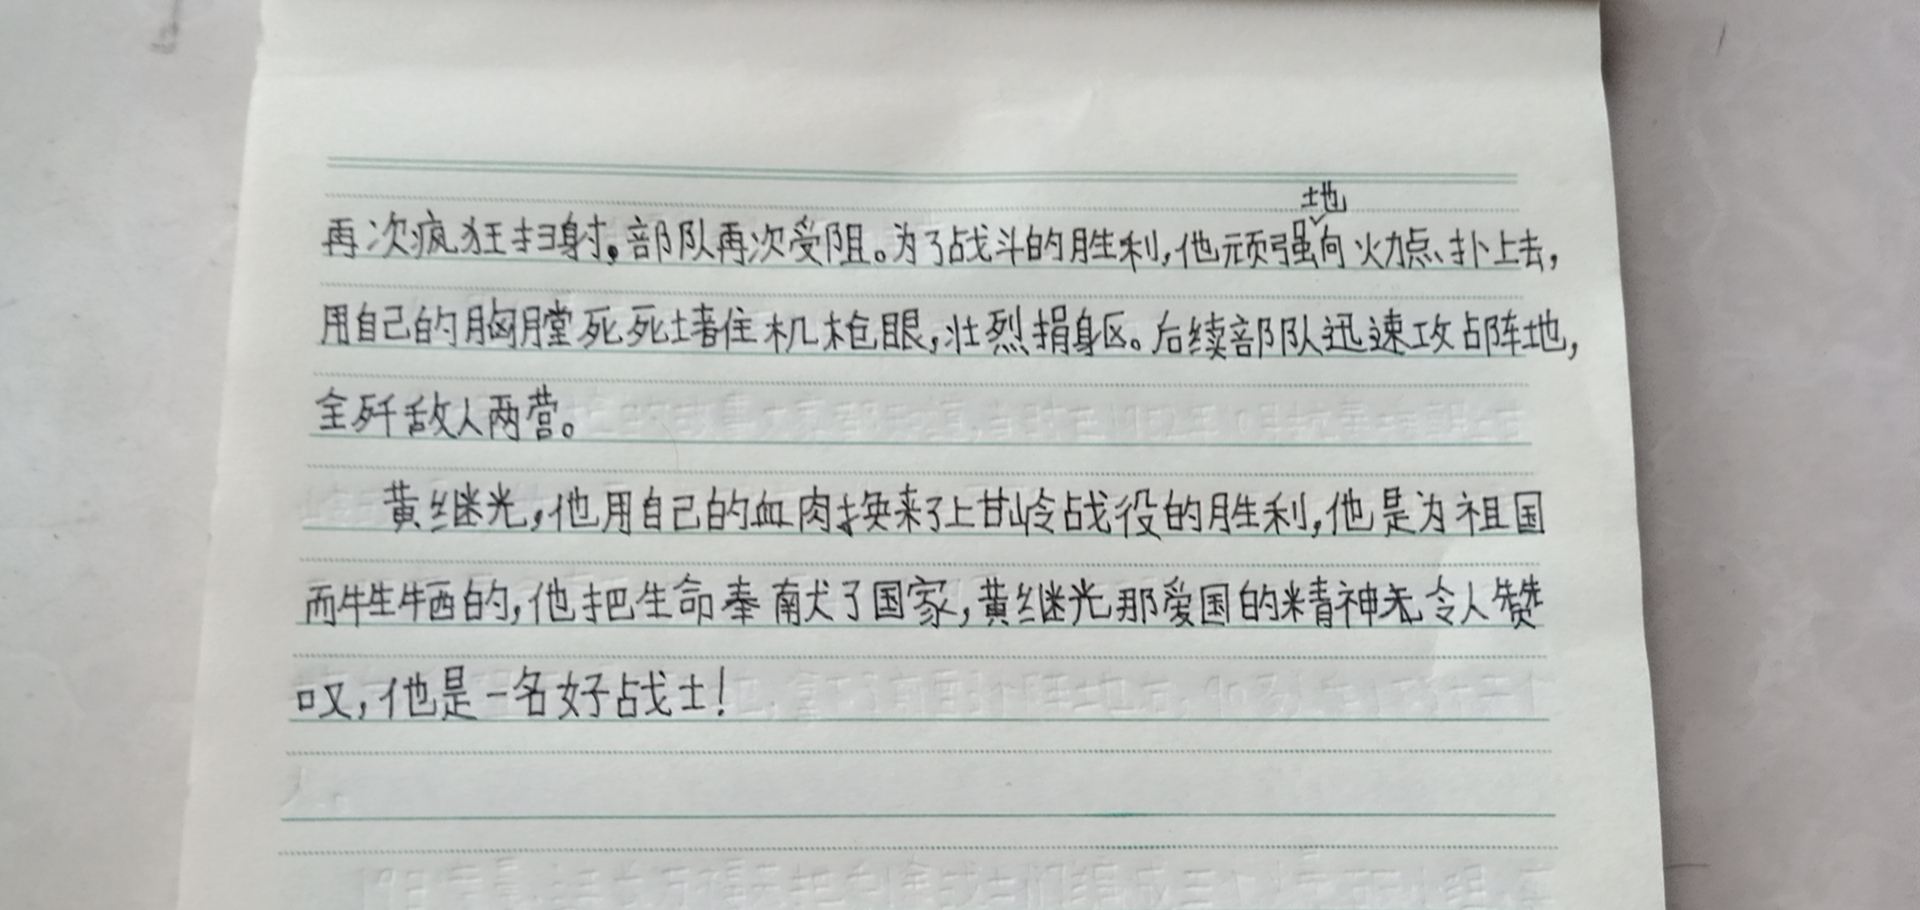 再次疯狂扫射。部队再次受阻。为了战斗的胜利,他顽强地向火力点扑上去,
用自己的胸膛死死堵住机枪眼,壮烈捐躯。后续部队迅速攻占阵地,
全歼敌人两营。
黄继光,他用自己的血肉换来了上甘岭战役的胜利,他是为祖国
而牺牲的,他把生命奉献了国家,黄继光那爱国的精神无令人赞
叹,他是一名好战士!